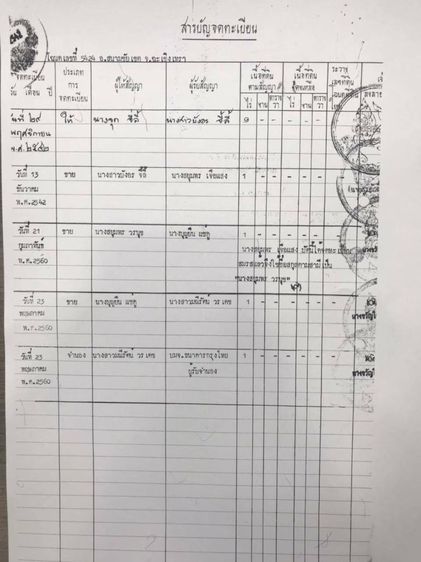 สารบัญจดทะเบียน
โฉนดเลขที่ 5424 อ.สนามชัยเขต จ.ฉะเชิงเทรา
จดทะเบียน
วัน เดือน ปี
ประเภท
การ
จดทะเบียน
ผู้ให้สัญญา
ผู้รับสัญญา
เนื้อที่ดิน
ตามสัญญา
ไร่ งาน ตาราง
วา
เนื้อที่ดิน
คงเหลือ
ไร่ งาน ตาราง
วา
ระวาง
เลขที่ดิน
วันที่ ๒๙
พฤศจิกายน
พ.ศ.๒๕๔๒
ให้ นางจุก ซิลี้ นางสาวบังอร ซิลี้ ๑ - - - - -
วันที่ 13
ธันวาคม
พ.ศ.2542
ขาย นางสาวบังอร ซิลี้ นางสมพร เจือแสง 1 - - - - -
วันที่ 21
กุมภาพันธ์
พ.ศ.2560
ขาย นางสมพร วรนุช นางบุญยืน แซ่คู 1 - - - - -
นางสมพร เจือแสง ปัจจุบันได้จดทะเบียน
สมรสแล้วจึงใช้ชื่อสกุลตามสามีเป็น
"นางสมพร วรนุช"
วันที่ 23
พฤษภาคม
พ.ศ.2560
ขาย นางบุญยืน แซ่คู นางสาวมณีรัตน์ วร เดช 1 - - - - -
วันที่ 23
พฤษภาคม
พ.ศ.2560
จำนอง นางสาวมณีรัตน์ วร เดช บมจ.ธนาคารกรุงไทย 1 - - - - -
ผู้รับจำนอง